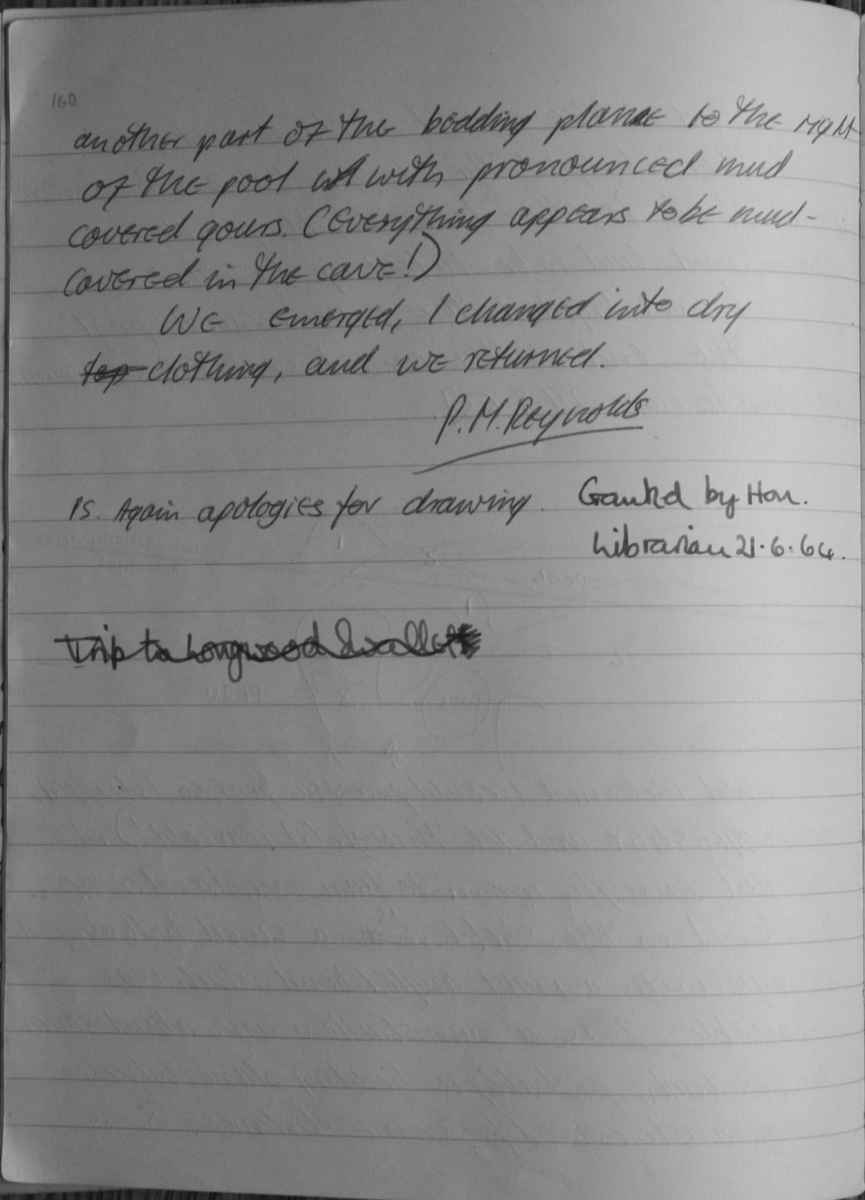 160
another part of the bedding plane to the right
of the pool with pronounced mud
covered gours. (Everything appears to be mud-
covered in the cave!)
We emerged, I changed into dry
top clothing, and we returned.
P.M. Reynolds
PS. Again apologies for drawing. Granted by Hon.
Librarian 21.6.64.
Trip to Longwood Swallet